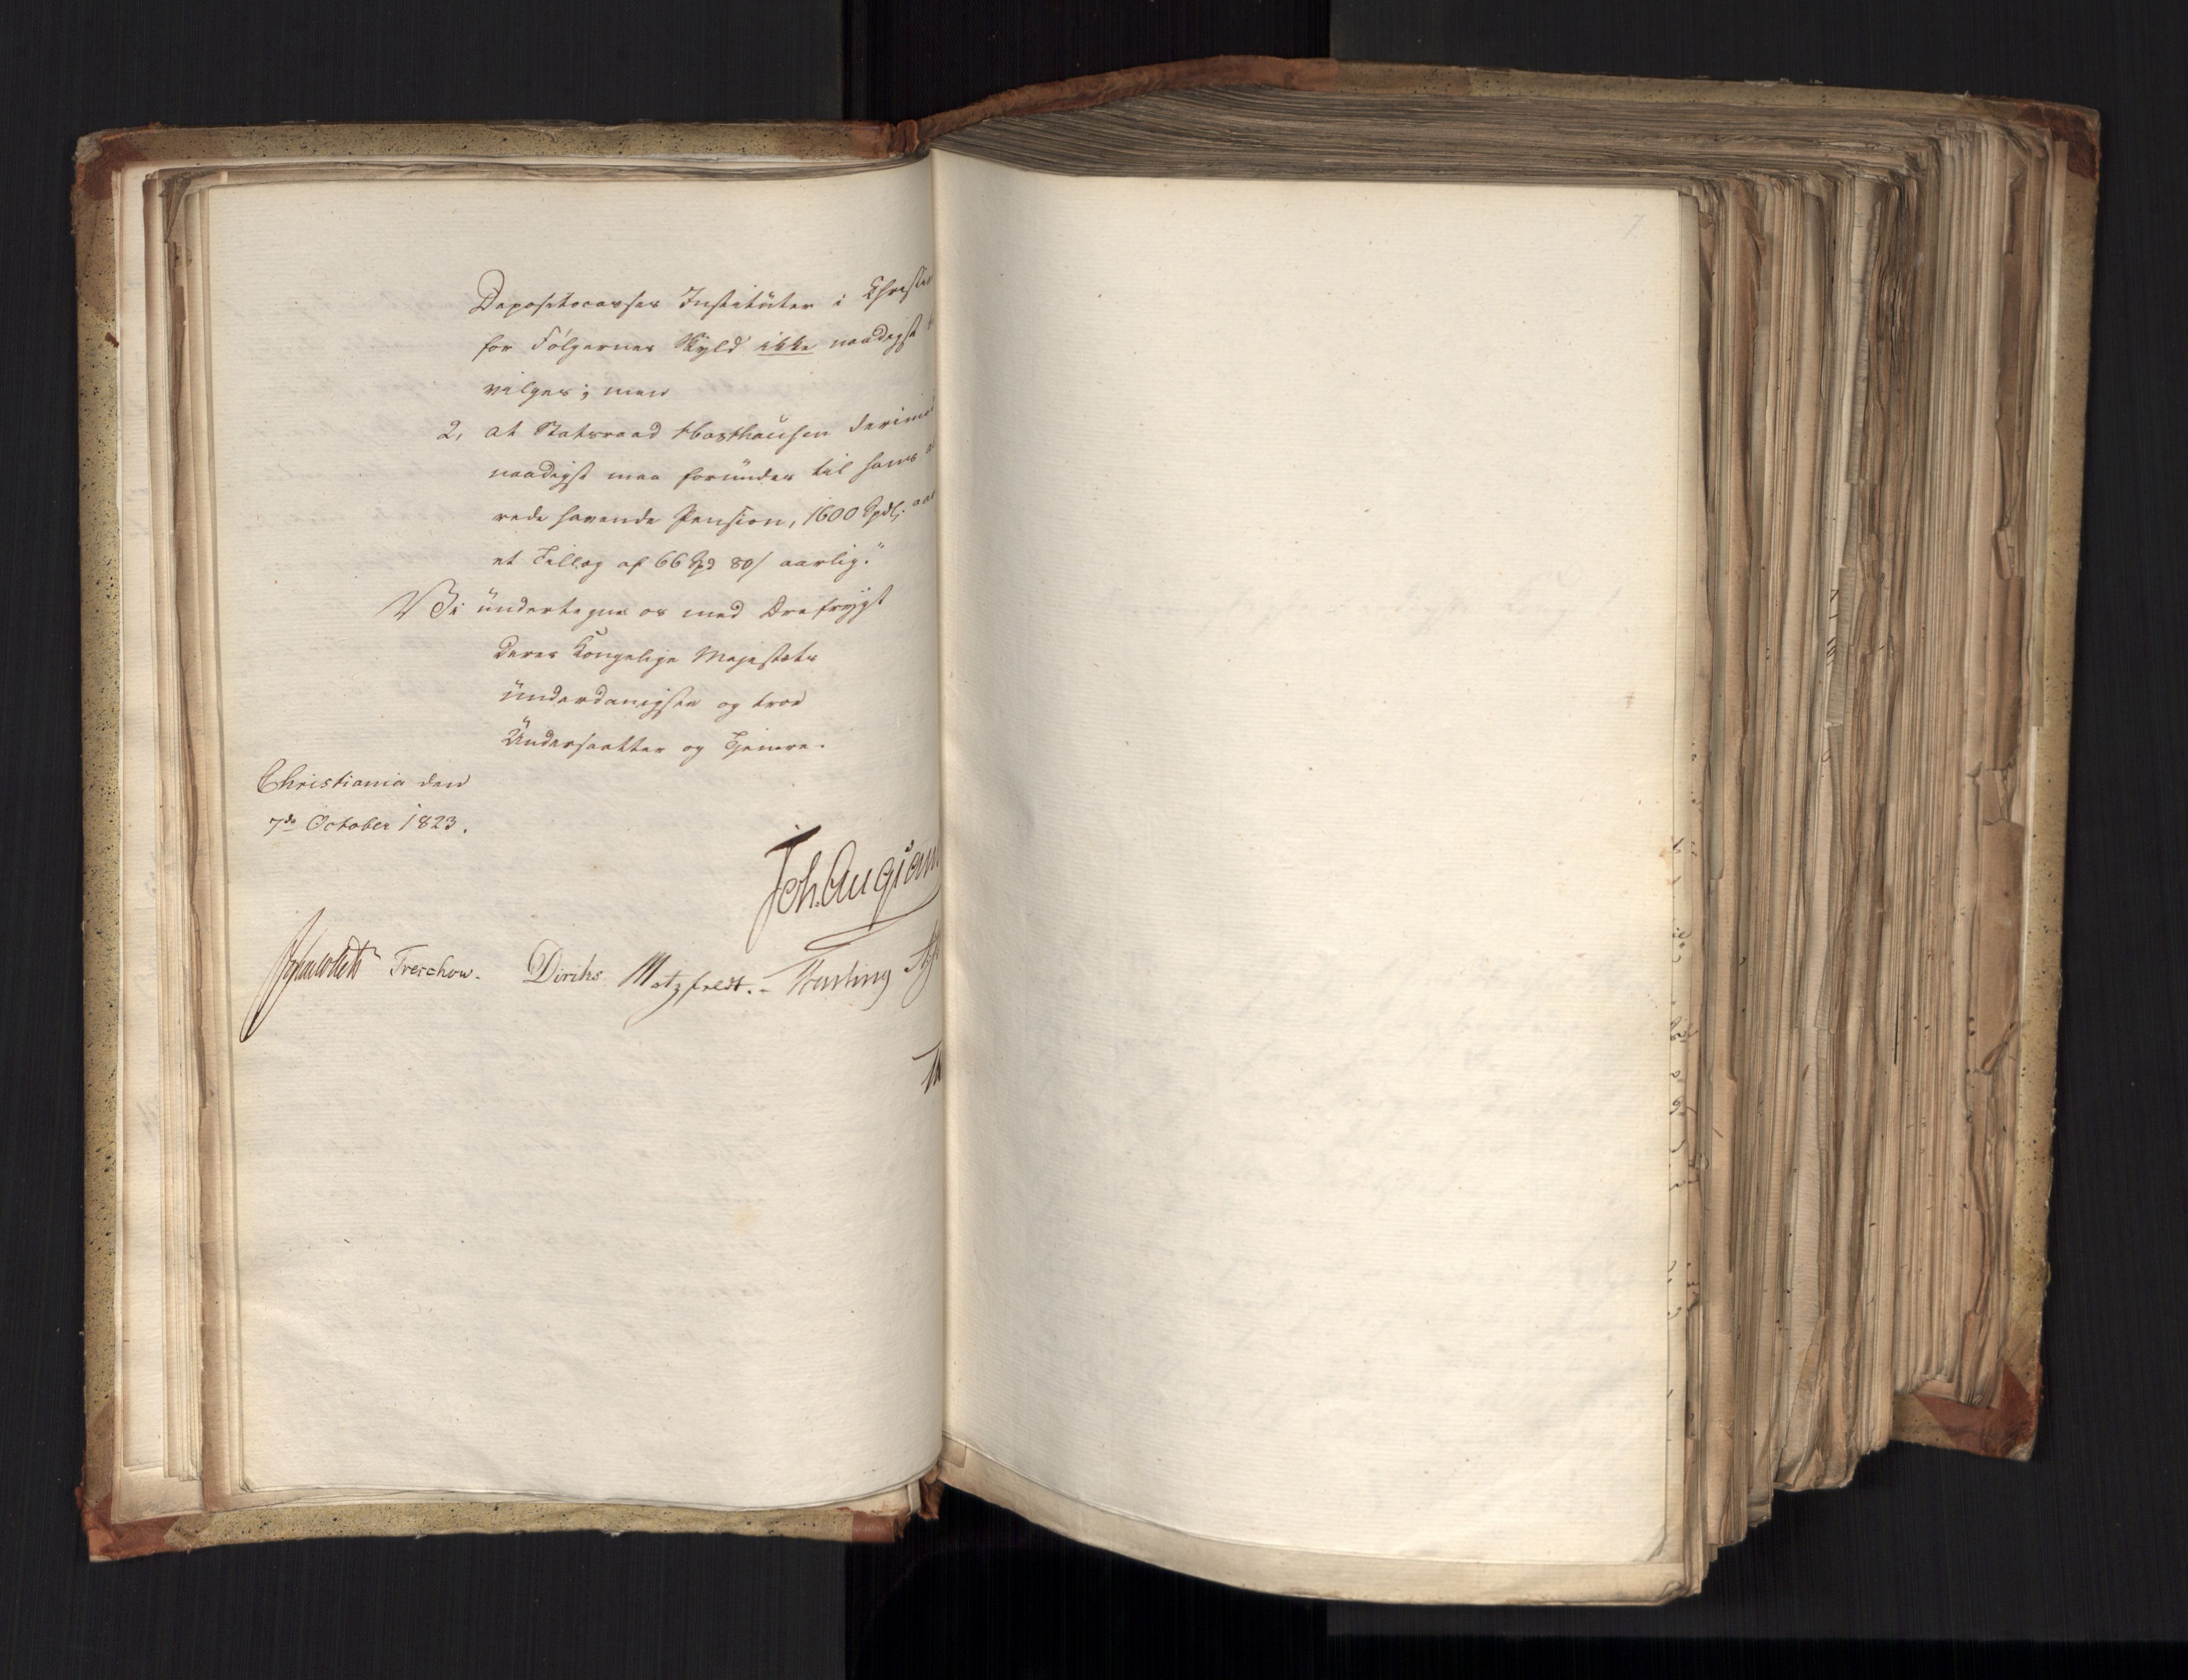 7
Depositocasses Institutter i Christi
for Følgernes Skyld ikke naadigst
vilges; men
2, at Statsraad Haxthausen derimod
naadigst maa forundes til hans
rede havende Pension, 1600 Spdl. aar
et Tillæg af 66 Spd 80/ aarlig."
Vi undertegne os med Ærefrygt
Deres Kongelige Majestæts
underdanigste og troe
Undersaatter og Tjenere.
Christiania den
7de October 1823.
Joh. Aug. San
Treschow. Diriks Motzfeldt.